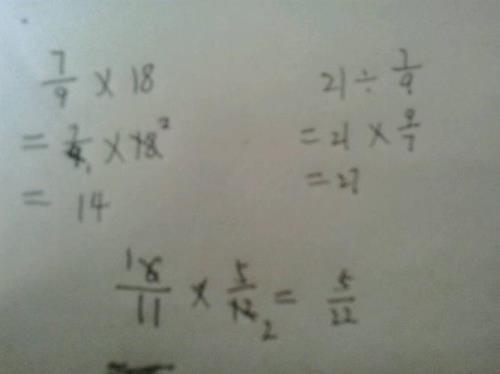 7/9 × 18
= 7/9₁ × 18²
= 14
21 ÷ 7/9
= 21 × 9/7
= 27
¹6/11 × 5/12₂ = 5/22